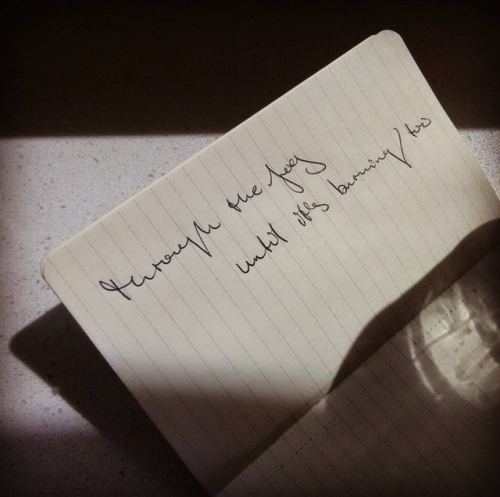 through the fog
until it's burning too